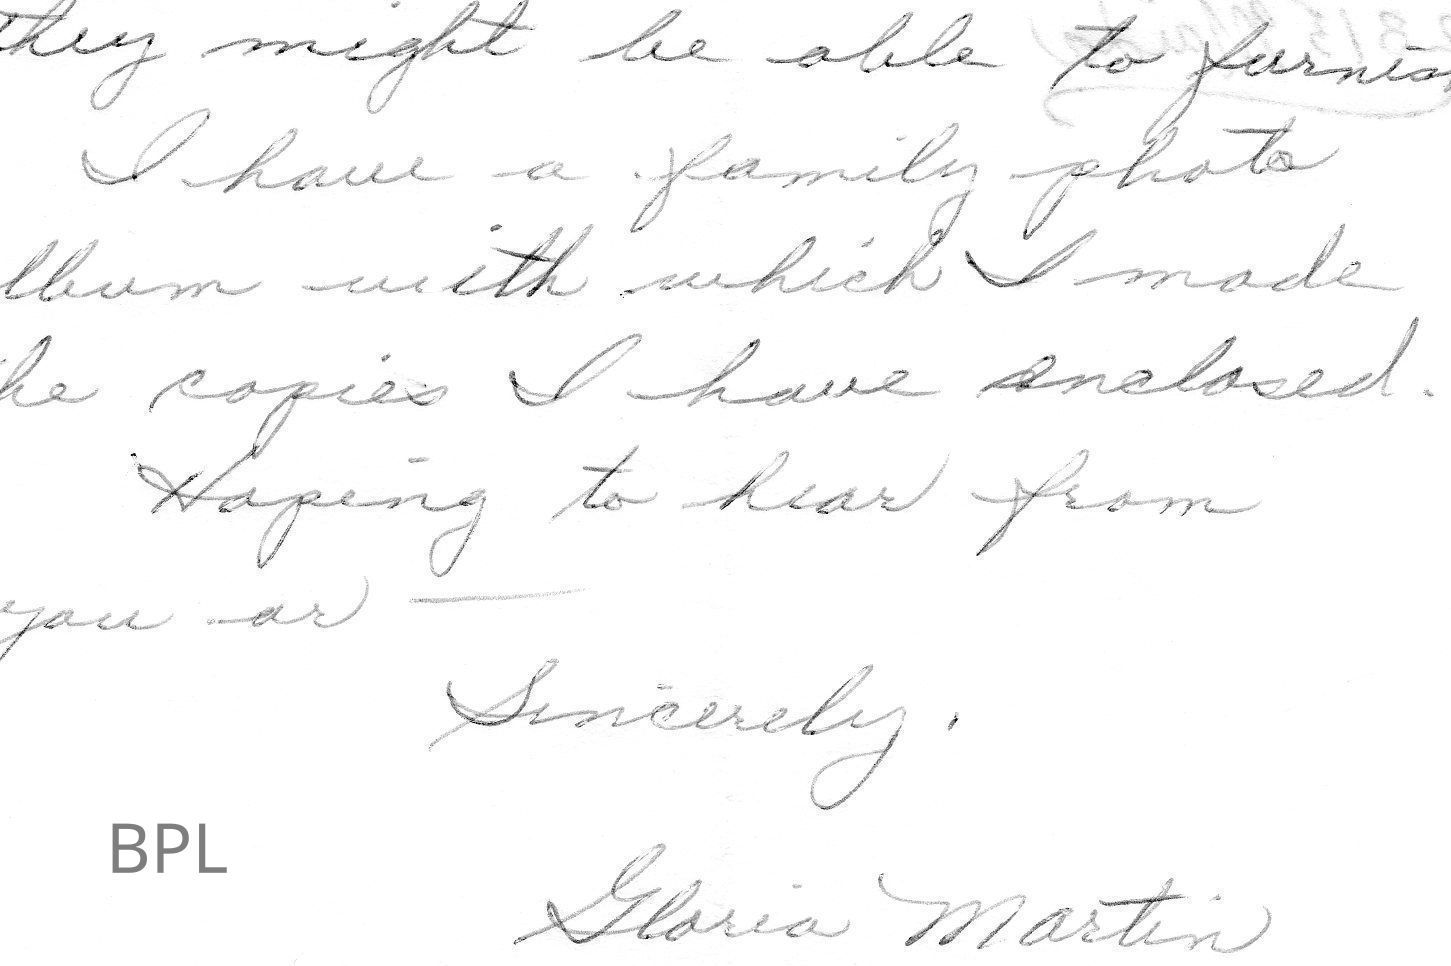 they might be able to furnish
I have a family photo
lbum with which I made
he copies I have enclosed.
Hoping to hear from
you or —
Sincerely,
BPL
Gloria Martin